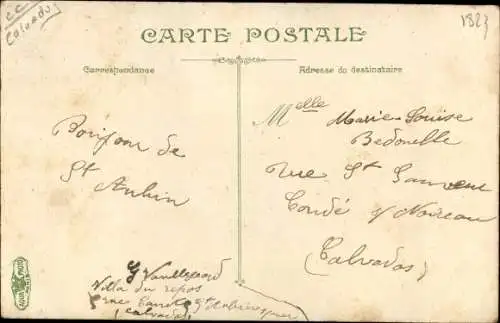 CC
Calvados
1823
CARTE POSTALE
Correspondance
Adresse du destinataire
Bonjour de
St Aubin
Melle Marie-Louise
Bedouelle
Rue St Sauveur
Condé s/ Noireau
(Calvados)
Villa du repos
St Aubin s/mer
(Calvados)